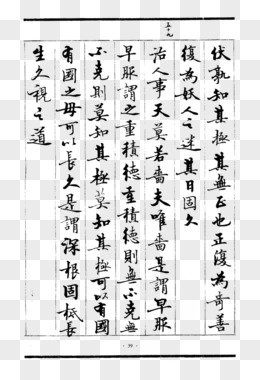 伏孰知其極其無正也正復為奇善
復為妖人之迷其日固久
五十九
治人事天莫若嗇夫唯嗇是謂早服
早服謂之重積德重積德則無不克無
不克則莫知其極莫知其極可以有國
有國之母可以長久是謂深根固柢長
生久視之道